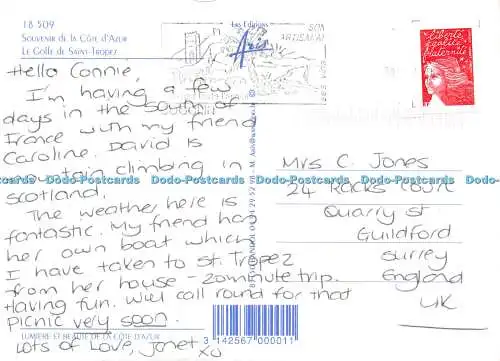 18 509
SOUVENIR DE LA CÔTE D'AZUR
LE GOLFE DE SAINT-TROPEZ
Hello Connie,
I'm having a few
days in the south of
France with my friend
Caroline. David is
mountain climbing in
Scotland.
The weather here is
fantastic. My friend has
her own boat which
I have taken to St. Tropez
from her house - 20 minute trip.
Having fun. Will call round for that
picnic very soon.
Lots of Love, Janet xx
LUMIÈRE ET BEAUTÉ DE LA CÔTE D'AZUR
Les Editions
Aris
SON
ARTISANAT
Liberté
égalité
fraternité
RF
Mrs C. Jones
24 Racks Court
Quarry St
Guildford
Surrey
England
UK
3 142567 000011
Dodo-Postcards Dodo-Postcards Dodo-Postcards Dodo-Postcards